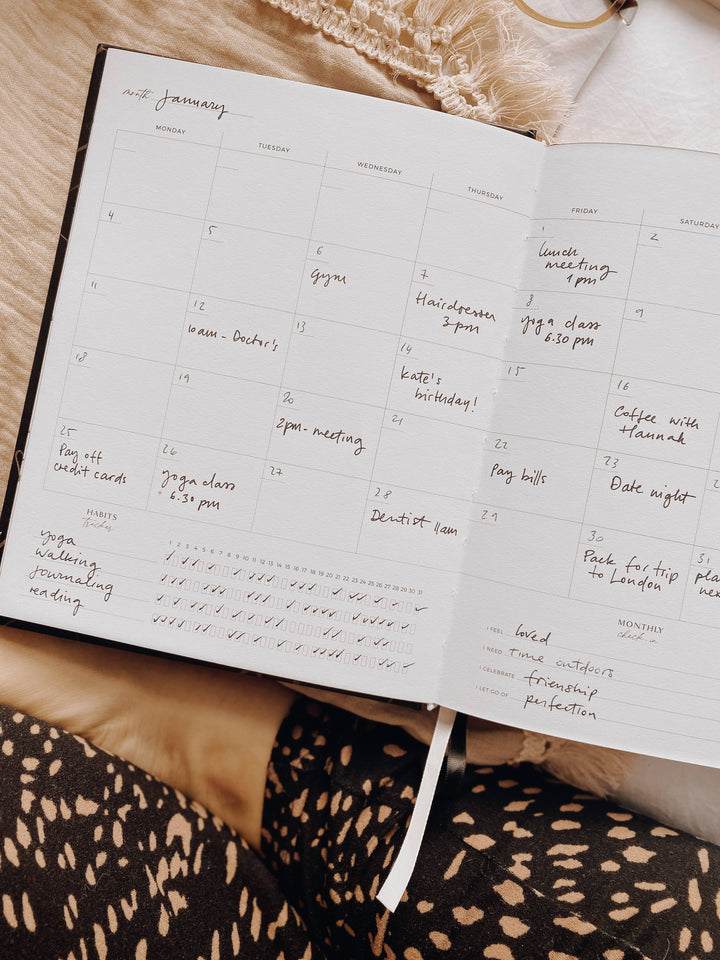 month: January
MONDAY TUESDAY WEDNESDAY THURSDAY FRIDAY SATURDAY
1 2
lunch
meeting
1 pm
4 5 6 7 8 9
Gym
Hairdresser
3 pm
yoga class
6.30 pm
11 12 13 14 15 16
10am - Doctor's
Kate's
birthday!
Coffee with
Hannah
18 19 20 21 22 23
2pm - meeting
Pay bills
Date night
25 26 27 28 29 30 31
Pay off
credit cards
yoga class
6.30 pm
Dentist 11am
Pack for trip
to London
HABITS
tracker
1 2 3 4 5 6 7 8 9 10 11 12 13 14 15 16 17 18 19 20 21 22 23 24 25 26 27 28 29 30 31
yoga
walking
journaling
reading
MONTHLY
check in
I FEEL loved
I NEED time outdoors
I CELEBRATE frienship
I LET GO OF perfection